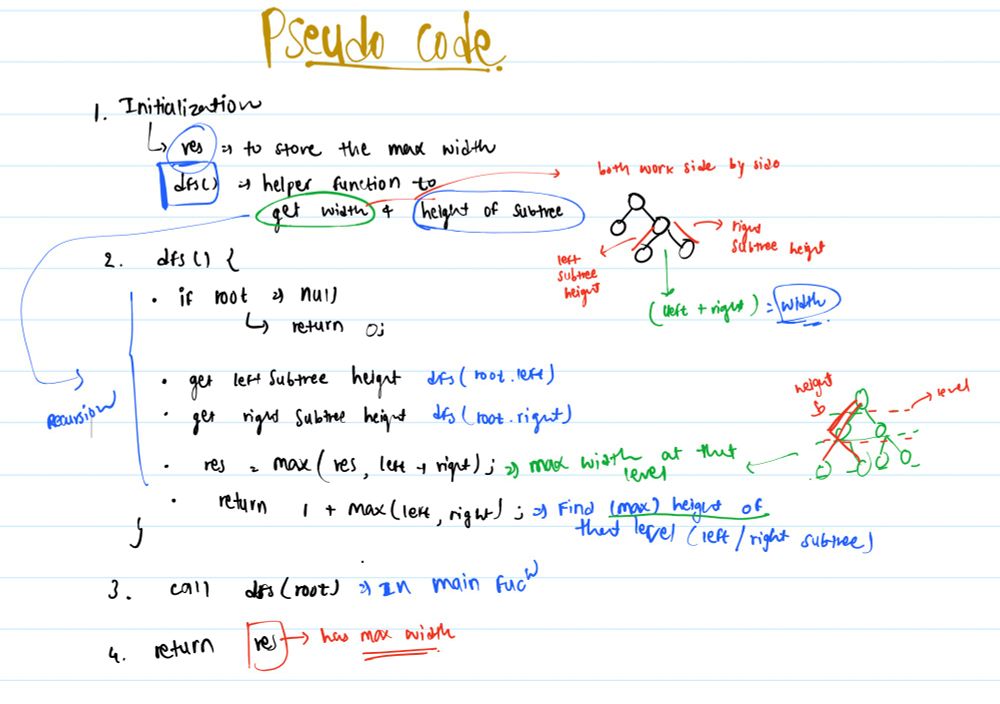 Pseudo code
1. Initialization
↳ res => to store the max width
dfs() => helper function to
get width & height of subtree
both work side by side
left
subtree
height
right
subtree height
(left + right) = width
2. dfs() {
• if root => null
↳ return 0;
• get left subtree height dfs(root.left)
• get right subtree height dfs(root.right)
Recursion
height
→ level
• res = max(res, left + right); => max width at that
level
• return 1 + max(left, right); => Find (max) height of
that level (left/right subtree)
}
3. call dfs(root) => In main fucn
4. return res → has max width